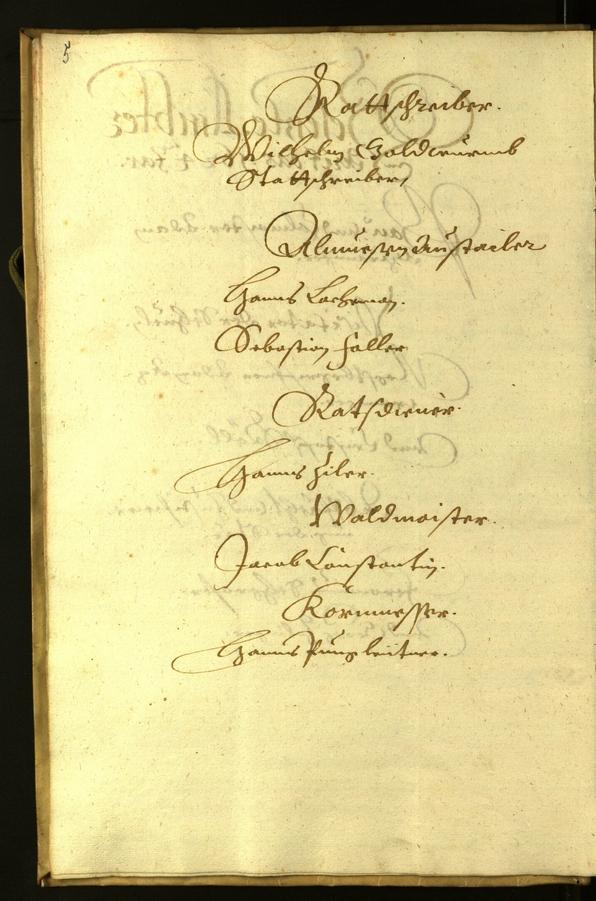 5
Rattschreiber.
Wilhelm Goldwurmb
Stattschreiber,
Almuesen Austailer
Hanns Lachman.
Sebastian Haller
Ratsdiener.
Hanns Hiler.
Waldmaister.
Jacob Constantin.
Kornmesser.
Hanns Pungleitner.